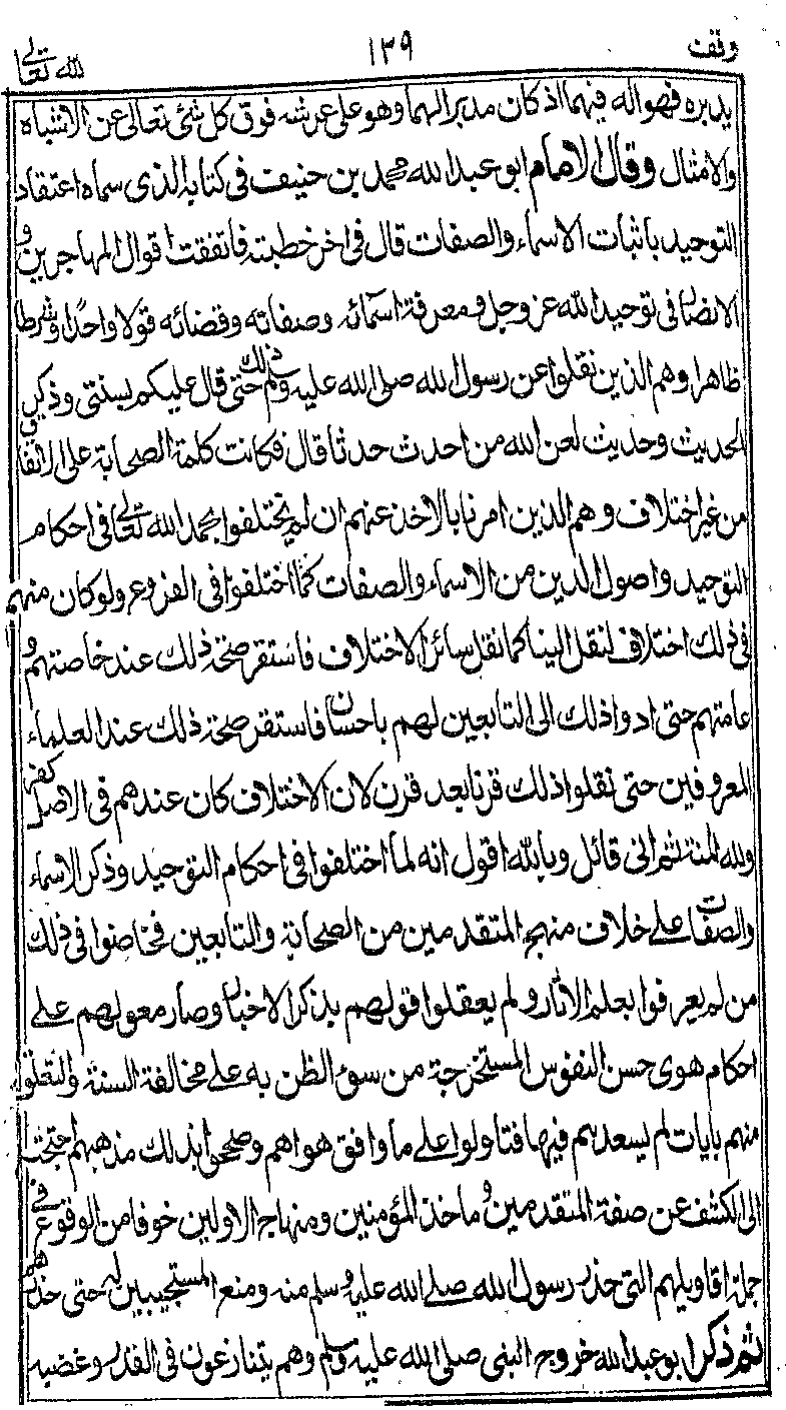 وقف ١٣٩ لله تعالى
يدبره فهو اله فيهما اذ كان مدبرا لهما وهو على عرشه فوق كل شئ تعالى عن الاشباه
والامثال وقال الامام ابو عبد الله محمد بن حنيف فى كتابه الذى سماه اعتقاد
التوحيد باثبات الاسماء والصفات قال فى اخر خطبته فاتفقت اقوال المهاجرين و
الانصار فى توحيد الله عز وجل ومعرفة اسمائه وصفاته وقضائه قولا واحدا وشرطا
ظاهرا وهم الذين نقلوا عن رسول الله صلى الله عليه وسلم ذلك حتى قال عليكم بسنتى وذكر
الحديث وحديث لعن الله من احدث حدثا قال فكانت كلمة الصحابة على الاتفاق
من غير اختلاف وهم الذين امرنا بالاخذ عنهم ان لم يختلفوا بحمد الله تعالى فى احكام
التوحيد واصول الدين من الاسماء والصفات كما اختلفوا فى الفروع ولو كان منهم
فى ذلك اختلاف لنقل الينا كما نقل سائر الاختلاف فاستقر صحة ذلك عند خاصتهم و
عامتهم حتى ادوا ذلك الى التابعين لهم باحسان فاستقر صحة ذلك عند العلماء
المعروفين حتى نقلوا ذلك قرنا بعد قرن لان الاختلاف كان عندهم فى الاصل كفر
ولله المنة ثم انى قائل وبالله اقول انه لما اختلفوا فى احكام التوحيد وذكر الاسماء
والصفات على خلاف منهج المتقدمين من الصحابة والتابعين فخاضوا فى ذلك
من لم يعرفوا بعلم الاثار ولم يعقلوا قولهم بذكر الاخبار وصار معولهم على
احكام هوى حسن النفوس المستخرجة من سوء الظن به على مخالفة السنة والتعلق
منهم بايات لم يسعدهم فيها فتاولوا على ما وافق هواهم وصححوا بذلك مذهبهم احتجت
الى الكشف عن صفة المتقدمين و ماخذ المؤمنين ومنهاج الاولين خوفا من الوقوع فى
جملة اقاويلهم التى حذر رسول الله صلى الله عليه وسلم منه ومنع المستجيبين له حتى حذرهم
ثم ذكر ابو عبد الله خروج النبى صلى الله عليه وسلم وهم يتنازعون فى القدر وغضبه